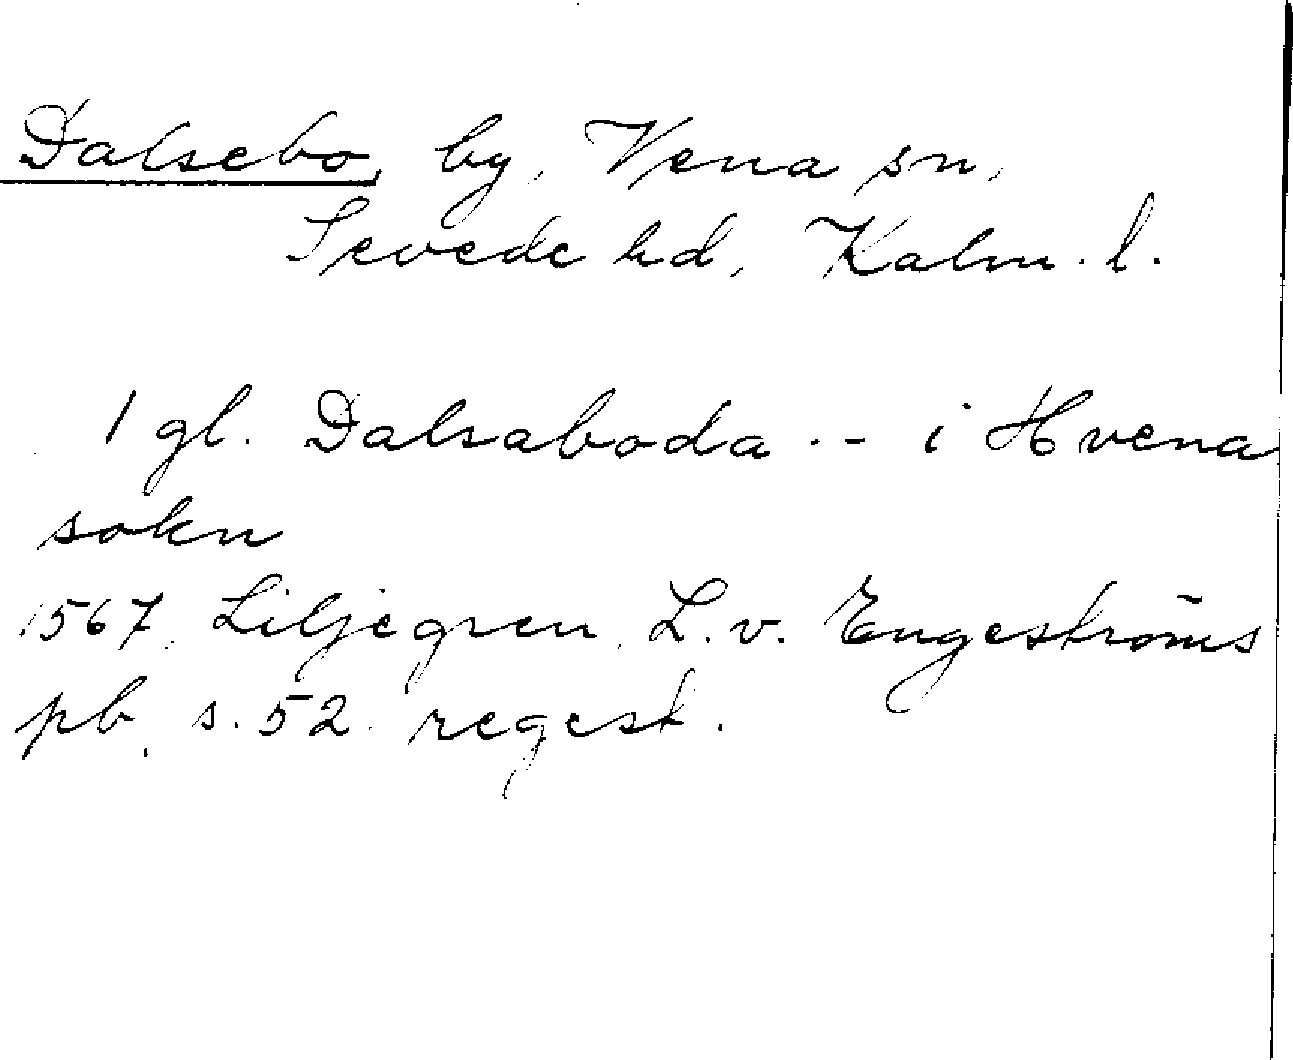 Dalsebo, by, Vena sn,
Sevede hd, Kalm. l.
1 gl. Dalsaboda -- i Hvena
sokn
1567. Liljegren, L. v. Engeströms
pb, s. 52. regest.